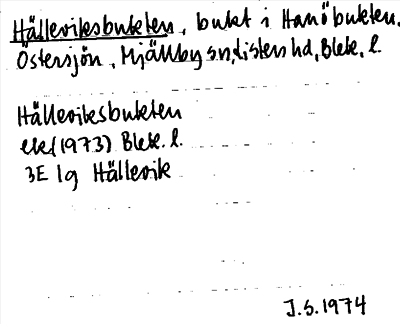 Hälleviksbukten, bukt i Hanöbukten.
Östersjön, Mjällby sn, Listers hd, Blek. l.
Hälleviksbukten
ekd (1973) Blek. l.
3E 1g Hällevik
J.S. 1974